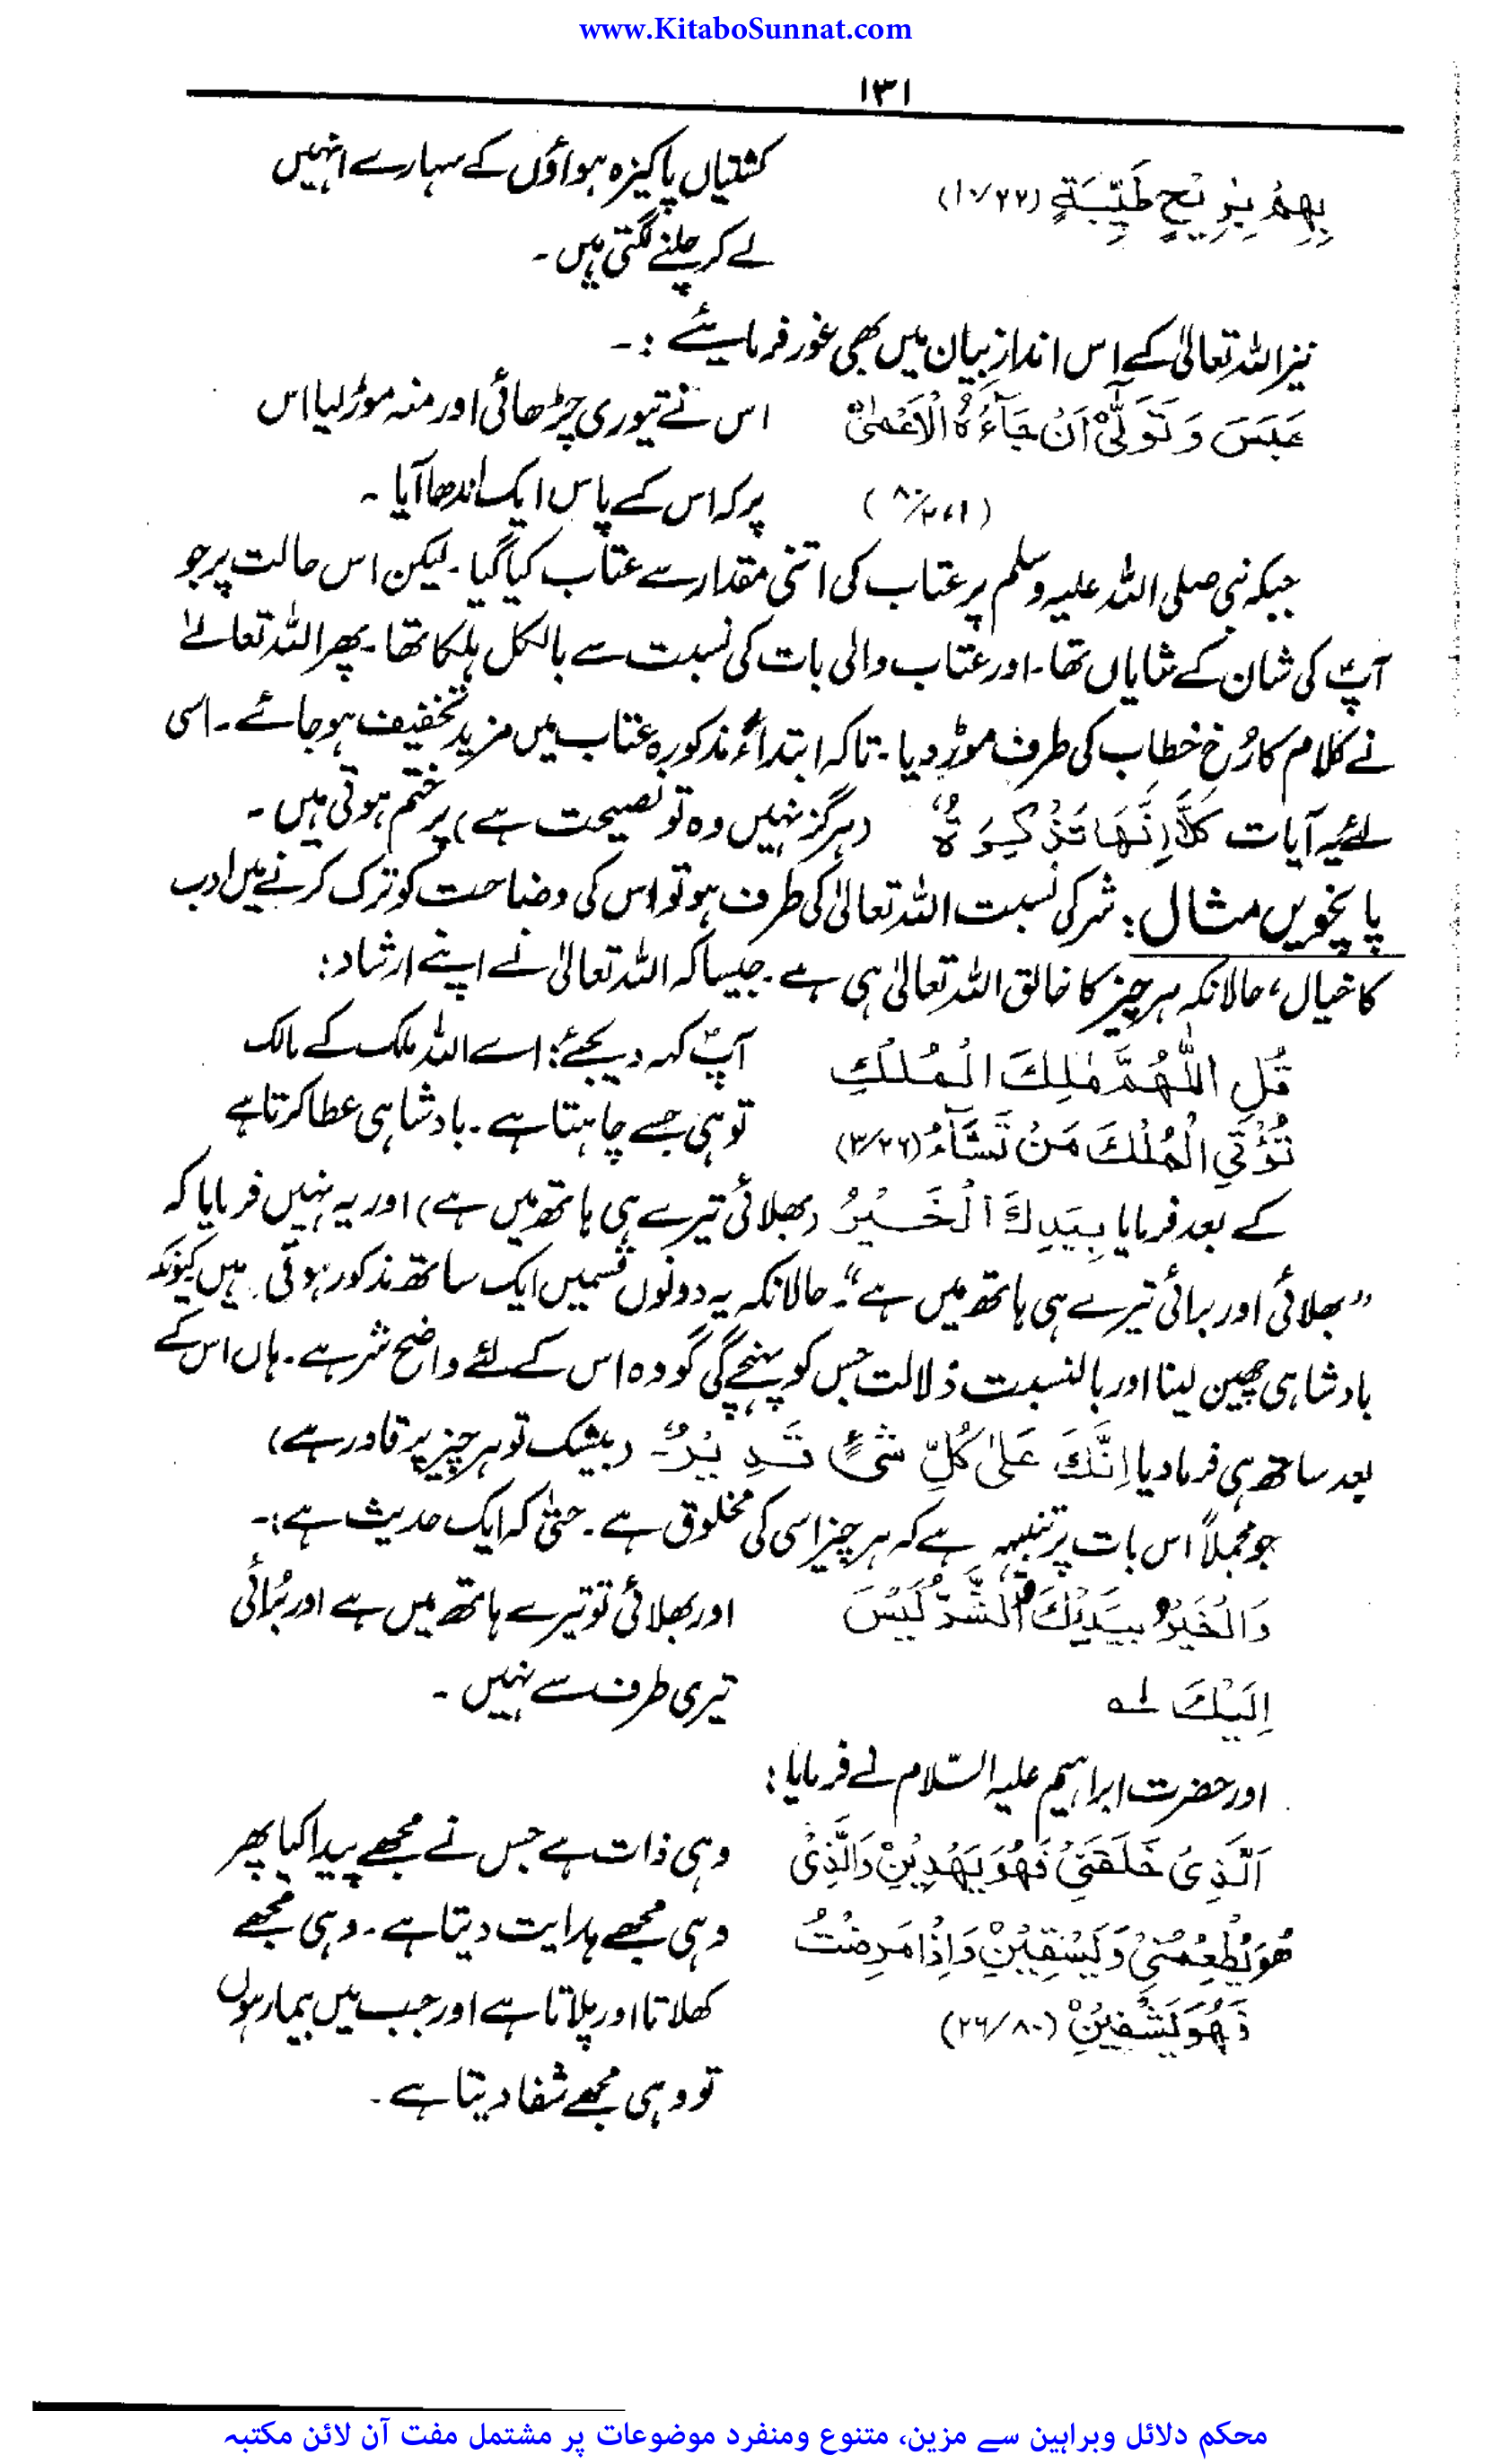 www.KitaboSunnat.com
۱۳۱
بِهِمْ بِرِيْحٍ طَيِّبَةٍ (۱۰/۲۲) کشتیاں پاکیزہ ہواؤں کے سہارے انہیں
لے کر چلنے لگتی ہیں ۔
نیز اللہ تعالیٰ کے اس اندازِ بیان میں بھی غور فرمایئے :۔
عَبَسَ وَ تَوَلّٰىٓ اَنْ جَآءَهُ الْاَعْمٰى اس نے تیوری چڑھائی اور منہ موڑ لیا اس
(۸۰/۲،۱) پر کہ اس کے پاس ایک اندھا آیا ۔
جبکہ نبی صلی اللہ علیہ وسلم پر عتاب کی اتنی مقدار سے عتاب کیا گیا ۔ لیکن اس حالت پر جو
آپؐ کی شان کے شایاں تھا ۔ اور عتاب والی بات کی نسبت سے بالکل ہلکا تھا ۔ پھر اللہ تعالےٰ
نے کلام کا رُخ خطاب کی طرف موڑ دیا ۔ تاکہ ابتداءً مذکورہ عتاب میں مزید تخفیف ہو جائے ۔ اسی
لئے یہ آیات كَلَّا اِنَّهَا تَذْكِرَةٌ (ہرگز نہیں وہ تو نصیحت ہے) پر ختم ہوتی ہیں ۔
پانچویں مثال : شر کی نسبت اللہ تعالیٰ کی طرف ہو تو اس کی وضاحت کو ترک کرنے میں ادب
کا خیال ، حالانکہ ہر چیز کا خالق اللہ تعالیٰ ہی ہے ۔ جیسا کہ اللہ تعالیٰ نے اپنے ارشاد :
قُلِ اللّٰهُمَّ مٰلِكَ الْمُلْكِ آپؐ کہہ دیجئے : اے اللہ ملک کے مالک
تُؤْتِي الْمُلْكَ مَنْ تَشَآءُ (۳/۲۶) تو ہی جسے چاہتا ہے ۔ بادشاہی عطا کرتا ہے
کے بعد فرمایا بِيَدِكَ الْخَيْرُ (بھلائی تیرے ہی ہاتھ میں ہے) اور یہ نہیں فرمایا کہ
”بھلائی اور برائی تیرے ہی ہاتھ میں ہے“۔ حالانکہ یہ دونوں قسمیں ایک ساتھ مذکور ہوتی ہیں کیونکہ
بادشاہی چھین لینا اور بالنسبت ذلالت جس کو پہنچے گی گو وہ اس کے لئے واضح شر ہے ۔ ہاں اس کے
بعد ساتھ ہی فرما دیا اِنَّكَ عَلٰى كُلِّ شَىْءٍ قَدِيْرٌ (بیشک تو ہر چیز پر قادر ہے)
جو مجملاً اس بات پر تنبیہ ہے کہ ہر چیز اسی کی مخلوق ہے ۔ حتٰی کہ ایک حدیث ہے :۔
وَالْخَيْرُ بِيَدَيْكَ وَالشَّرُّ لَيْسَ اور بھلائی تو تیرے ہاتھ میں ہے اور بُرائی
اِلَيْكَ لہ تیری طرف سے نہیں ۔
اور حضرت ابراہیم علیہ السّلام نے فرمایا :
اَلَّذِىْ خَلَقَنِىْ فَهُوَ يَهْدِيْنِ وَالَّذِىْ وہی ذات ہے جس نے مجھے پیدا کیا پھر
هُوَ يُطْعِمُنِىْ وَيَسْقِيْنِ وَاِذَا مَرِضْتُ وہی مجھے ہدایت دیتا ہے ۔ وہی مجھے
فَهُوَ يَشْفِيْنِ (۲۶/۸۰) کھلاتا اور پلاتا ہے اور جب میں بیمار ہوں
تو وہی مجھے شفا دیتا ہے ۔
محکم دلائل وبراہین سے مزین، متنوع ومنفرد موضوعات پر مشتمل مفت آن لائن مکتبہ